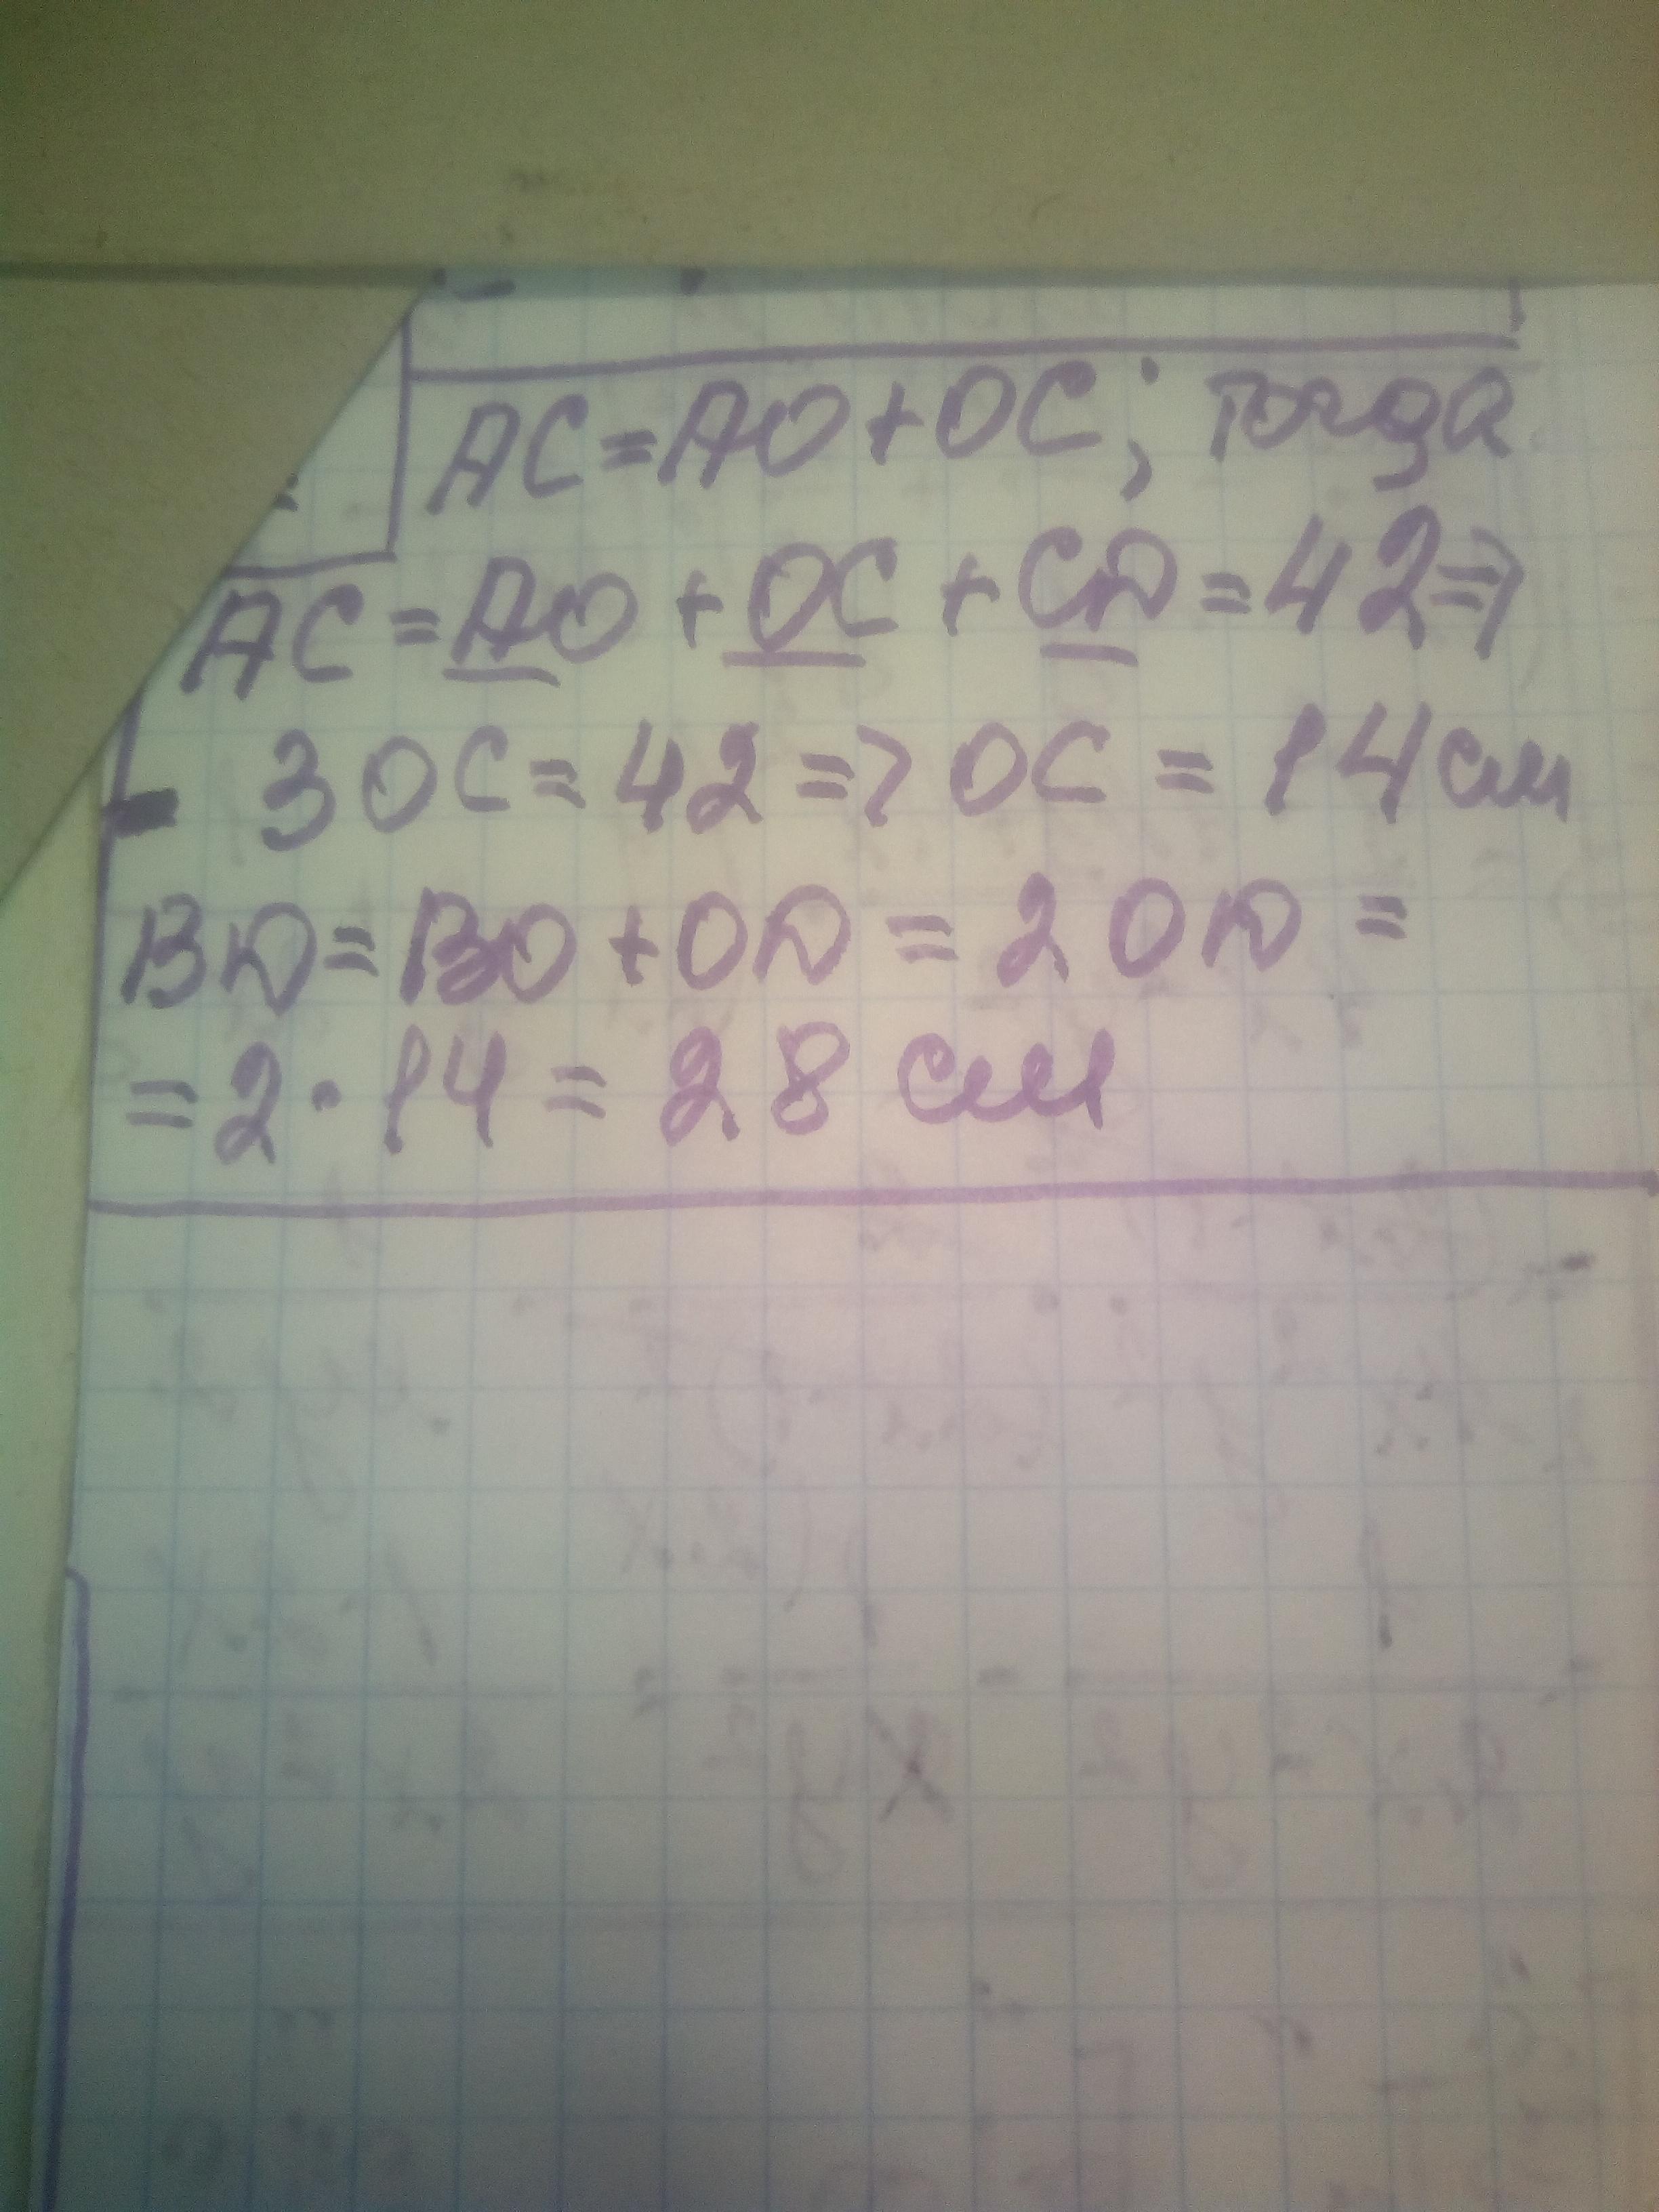 AC=AO+OC; тогда
AC=AO+OC+CD=42=>
3OC=42=>OC=14см
BD=BO+OD=2OD=
=2·14=28 см